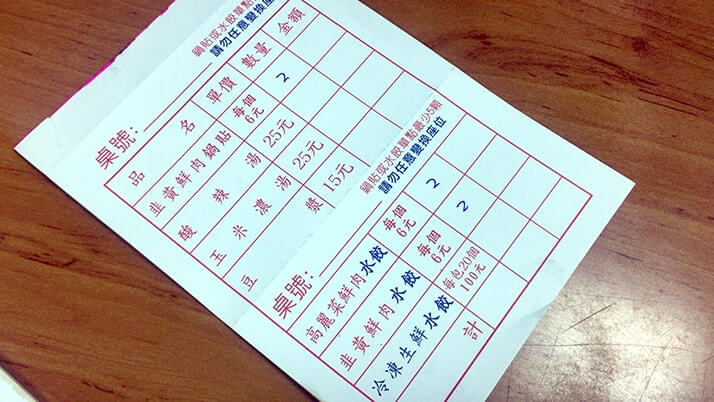 鍋貼或水餃單點
請勿任意變換座
桌號:
品名 單價 數量 金額
韭黃鮮肉鍋貼 每個6元 2
酸辣湯 25元
玉米濃湯 25元
豆漿 15元
鍋貼或水餃單點最少5顆
請勿任意變換座位
桌號:
高麗菜鮮肉水餃 每個6元 2
韭黃鮮肉水餃 每個6元 2
冷凍生鮮水餃 每包20個100元
計